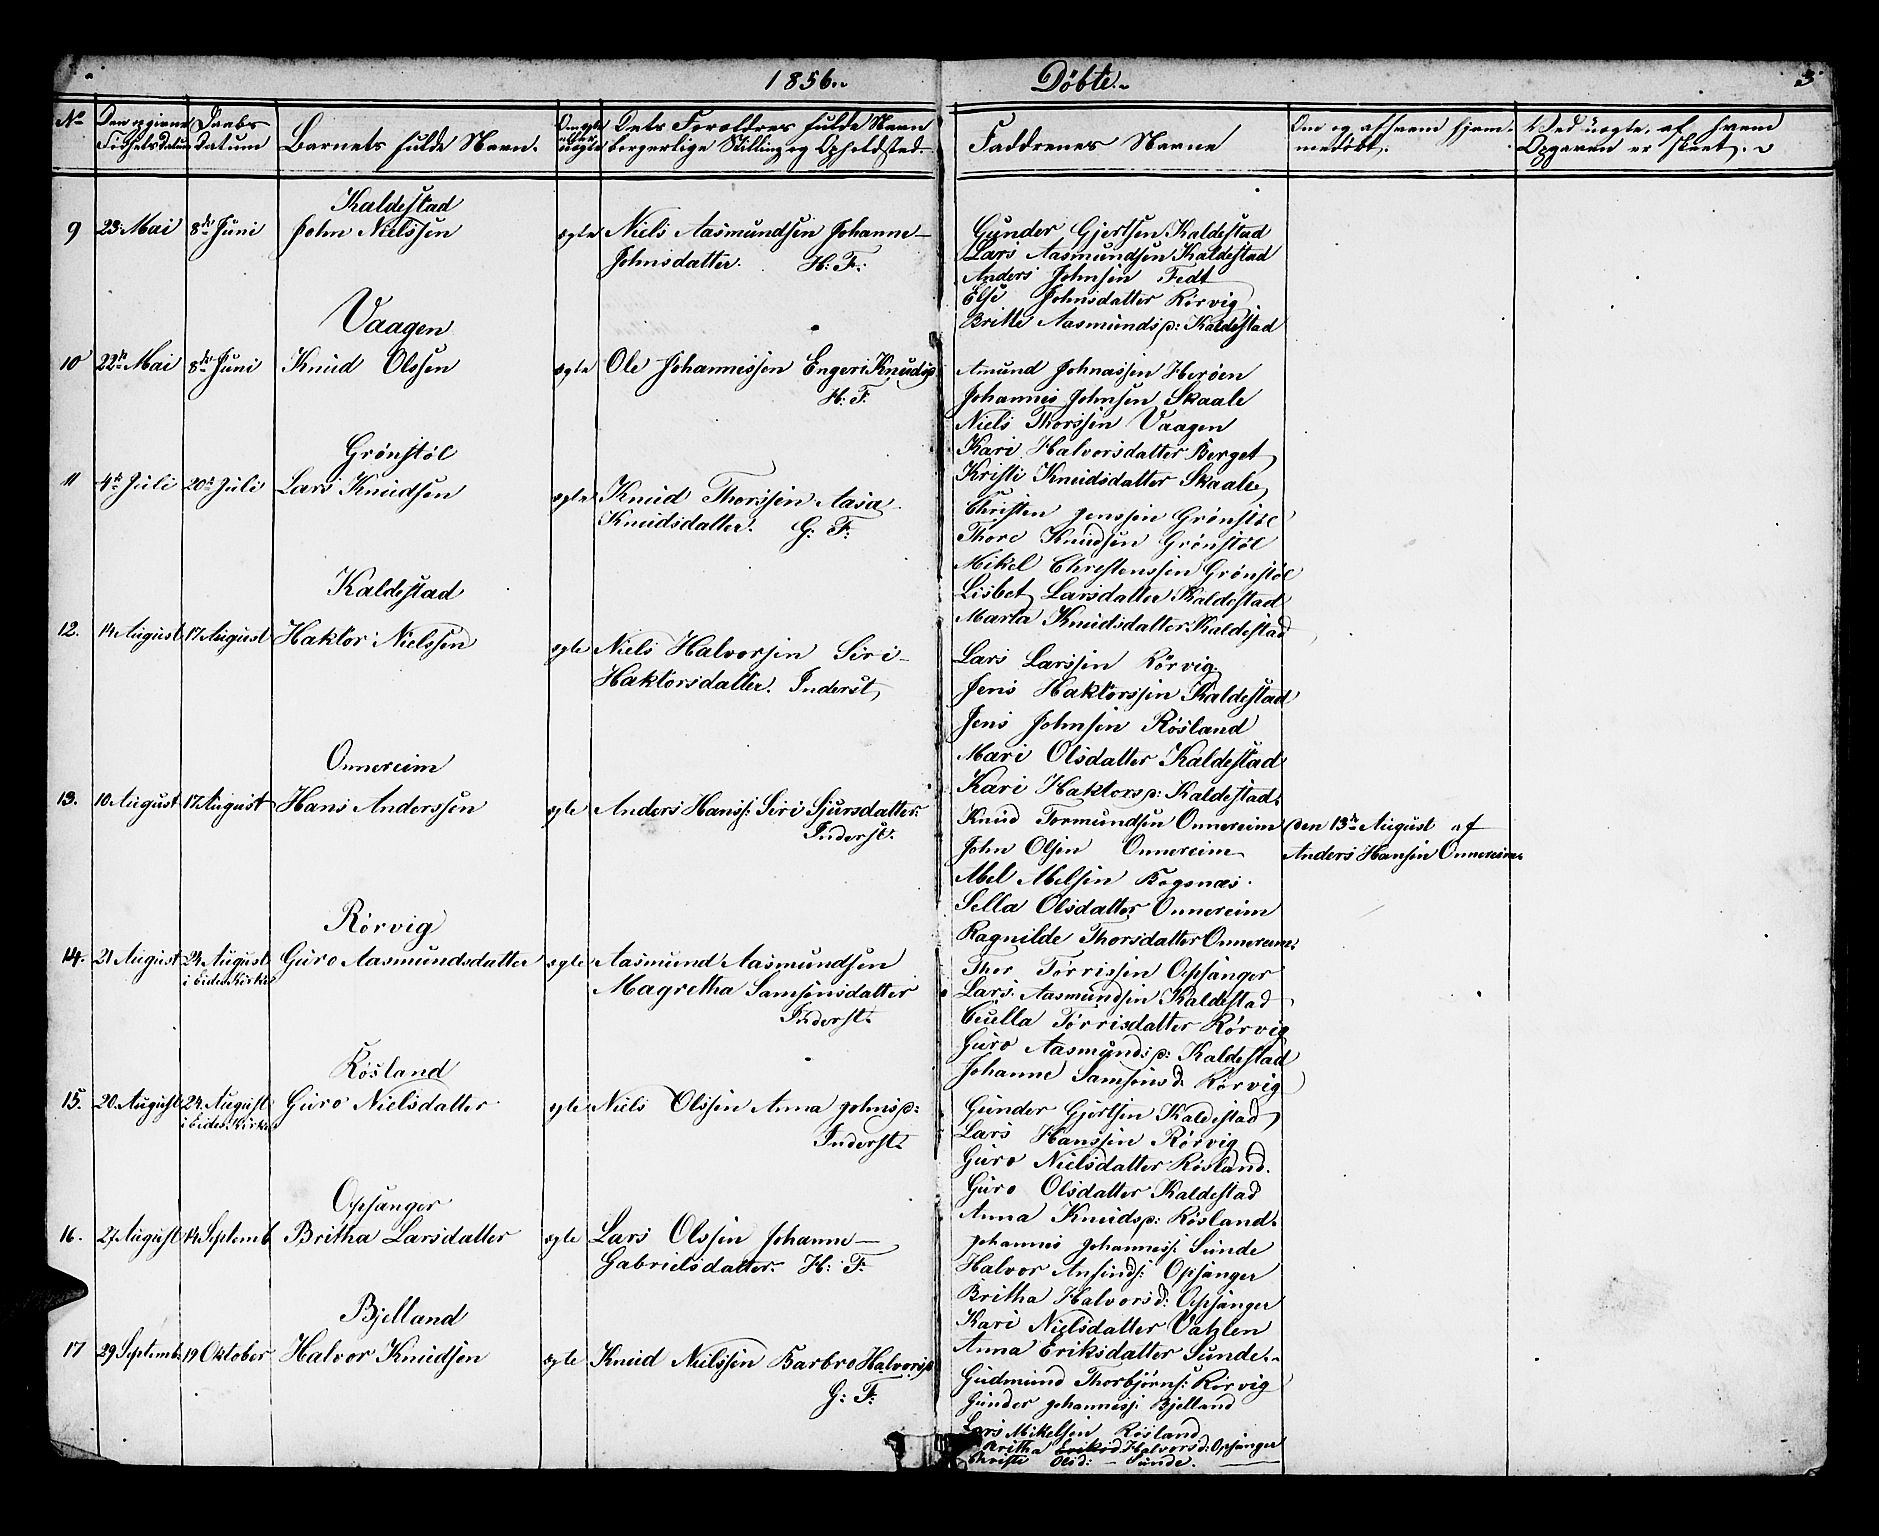 1856. Döbte. 3
No
Den opgivne Födselsdatum
Daabs Datum
Barnets fulde Navn.
Om ægte eller uægte
Dets Foreldres fulde Navn borgerlige Stilling og Opholdsted.
Faddrenes Navne
Om og af hvem hjemmedöbt.
Ved uægte, af hvem Opgaven er skeet.
Kaldestad
9 23 Mai 8de Juni John Nielssen ægte Niels Aasmundsen Johanne
Johnsdatter. H: F:
Gunder Gjertsen Kaldestad
Lars Aasmundsen Kaldestad
Anders Johnsen Fedt
Else Johnsdatter Rörvig
Britte Aasmundsd: Kaldestad
Vaagen
10 22de Mai 8de Juni Knud Olssen ægte Ole Johannissen Engeri Knudsd
H: F.
Amund Johnassen Heröen
Johannis Johnsen Skaale
Niels Thorssen Vaagen
Kari Halvorsdatter Berget
Kristi Knudsdatter Skaale
Grönstöl
11 4de Juli 20de Juli Lars Knudsen ægte Knud Thorssen Aasa
Knudsdatter. G: F:
Christen Jenssen Grönstöl
Thore Knudsen Grönstöl
Mikel Christenssen Grönstöl
Lisbet Larsdatter Kaldestad
Marta Knudsdatter Kaldestad
Kaldestad
12. 14 August 17 August Haktor Nielssen ægte Niels Halvorsen Siri
Haktorsdatter. Inderst
Lars Larssen Rörvig
Jens Haktorssen Kaldestad
Jens Johnsen Rösland
Mari Olsdatter Kaldestad
Kari Haktorsd: Kaldestad.
Onnereim
13. 10 August 17 August Hans Anderssen ægte Anders Hanss: Siri Sjursdatter
Inderst.
Knud Tormundsen Onnereim
John Olsen Onnereim
Mel Melsen Bogenæs.
Sella Olsdatter Onnereim
Ragnilde Thorsdatter Onnereim.
den 13de August af
Anders Hansen Onnereim
Rörvig
14. 21 August 24 August Guro Aasmundsdatter ægte Aasmund Aasmundsen
i Eides Kirke
Magretha Samsonsdatter
Inderst.
Thor Törrissen Opsanger
Lars Aasmundsen Kaldestad
Törrisdatter Rörvig
Guro Aasmundsd: Kaldestad
Johanne Samsonsd. Rörvig
Rösland
15. 20 August 24 August Guro Nielsdatter ægte Niels Olssen Anna Johnsd:
i Eides Kirke
Inderst.
Gunder Gjertsen Kaldestad
Lars Hanssen Rörvig
Guro Nielsdatter Rösland.
Guro Olsdatter Kaldestad
Anna Knudsd: Rösland.
Opsanger
16. 27 August 14 Septemb Britha Larsdatter ægte Lars Olssen Johanne
Gabrielsdatter. H: F.
Johannes Johanness: Sunde
Halvor Opsanger
Britha Halvorsd: Opsanger
Kari Nielsdatter Valen
Anna Eriksdatter Sunde.
Bjelland
17 29 Septemb. 19 Oktober Halvor Knudsen ægte Knud Nielssen Barbro Halvorsd
G: F:
Gudmund Thorbjörns: Rörvig
Gunder Johanness: Bjelland
Lars Mikelsen Rösland
Britha Eriksd Halvorsd: Opsanger
Christi Olsd: Sunde.